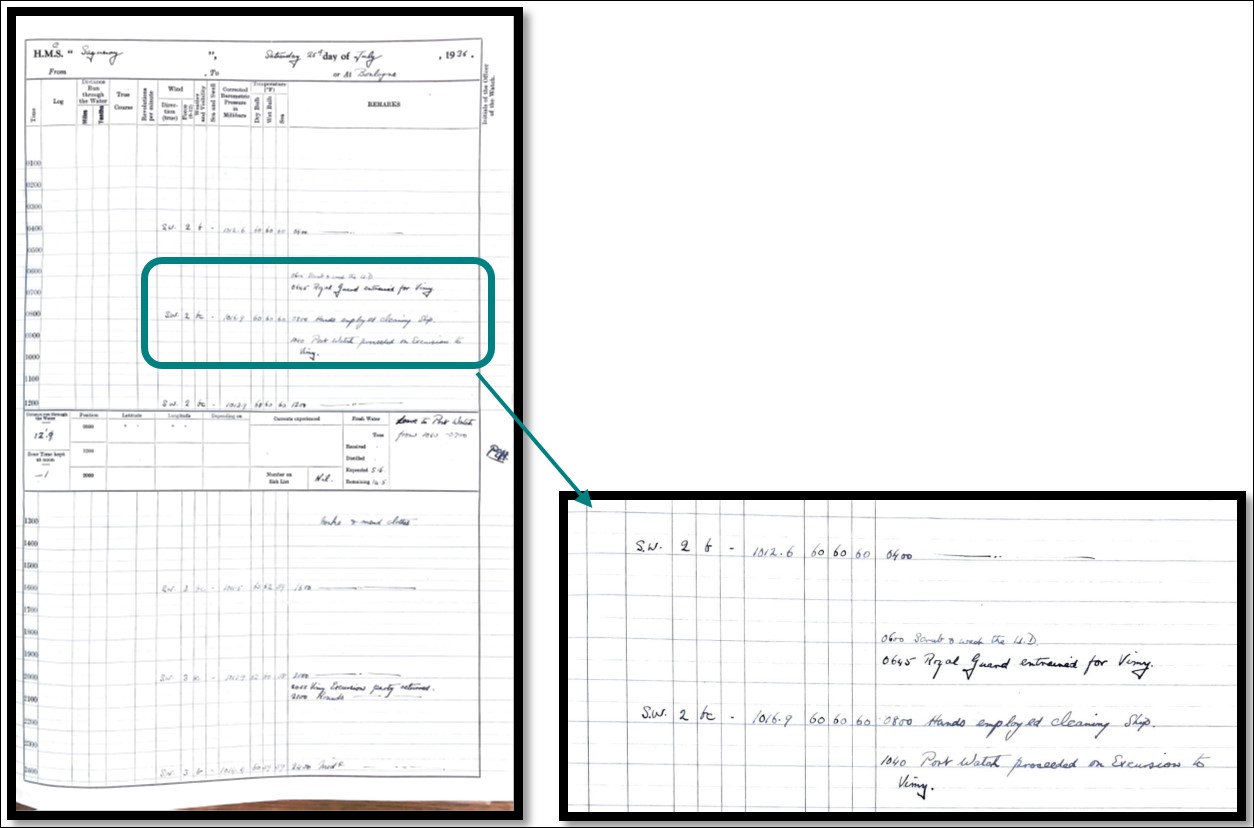 H.M.S. "Saguenay", Saturday 25th day of July, 1936.
From , To or At Boulogne
Time
Log
Distance Run through the Water
Miles
Tenths
True Course
Revolutions per minute
Wind
Direction (true)
Force (0-12)
Weather and Visibility
Sea and Swell
Corrected Barometric Pressure in Millibars
Temperature (°F)
Dry Bulb
Wet Bulb
Sea
REMARKS
Initials of the Officer of the Watch.
0100
0200
0300
0400 S.W. 2 b - 1012.6 60 60 60 0400
0500
0600
0645 Royal Guard entrained for Vimy
0700
0800 S.W. 2 bc - 1016.9 60 60 60 0800 Hands employed cleaning Ship.
0900
1040 Port Watch proceeded on Excursion to
Vimy.
1000
1100
1200 S.W. 2 bc - 60 60 60 1200
Position
Latitude
Longitude
Depending on
Currents experienced
Fresh Water
Leave to Port Watch
0800
from 1040 - 0700
12.9
Tons
Received
1200
Distilled
Zone Time kept at noon
Expended 5.5
-1
2000
Number on Sick List
Nil.
Remaining
1300 make & mend clothes
1400
1500
1600 S.W. 3 bc - 1600
1700
1800
1900
2000 S.W. 3 bc
Vimy Excursion party returned.
2100 Rounds
2100
2200
2300
2400 S.W. 3
S.W. 2 b - 1012.6 60 60 60 0400
0600 Scrub & wash the U.D.
0645 Royal Guard entrained for Vimy.
S.W. 2 bc - 1016.9 60 60 60 0800 Hands employed cleaning Ship.
1040 Port Watch proceeded on Excursion to
Vimy.